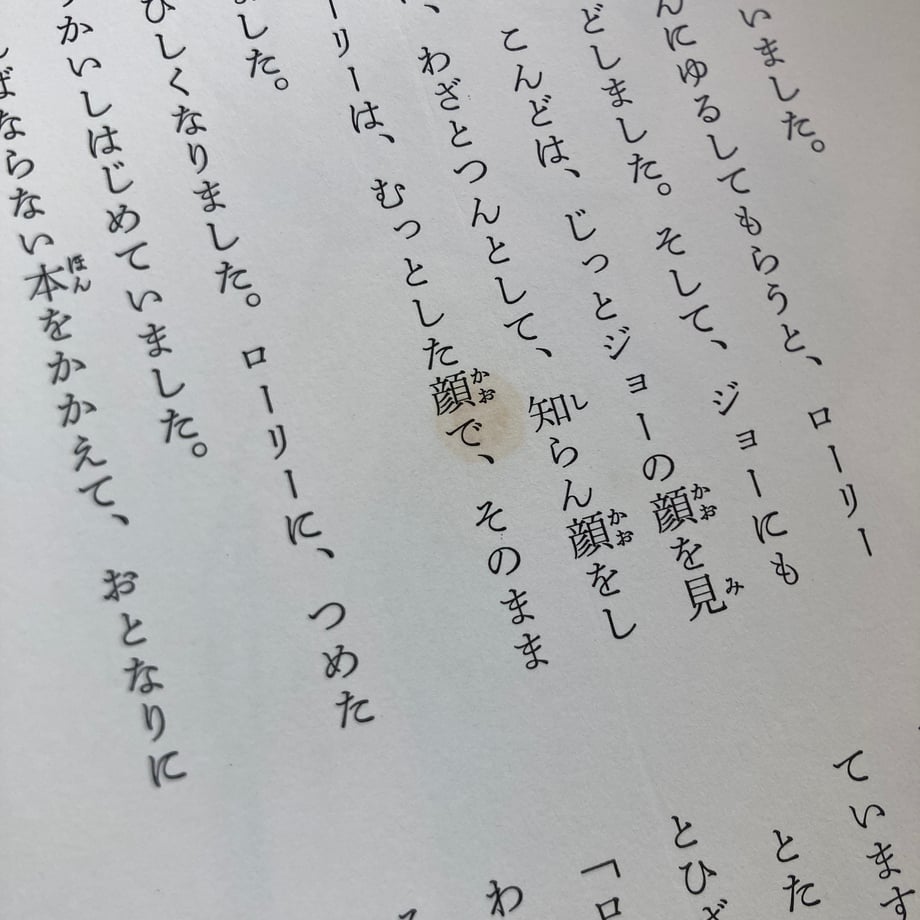 いました。
んにゆるしてもらうと、ローリー
どしました。そして、ジョーにも
こんどは、じっとジョーの顔を見
、わざとつんとして、知らん顔をし
ーリーは、むっとした顔で、そのまま
ました。
びしくなりました。ローリーに、つめた
かいしはじめていました。
ばならない本をかかえて、おとなりに
ています
とた
とひざ
「ロ
わ